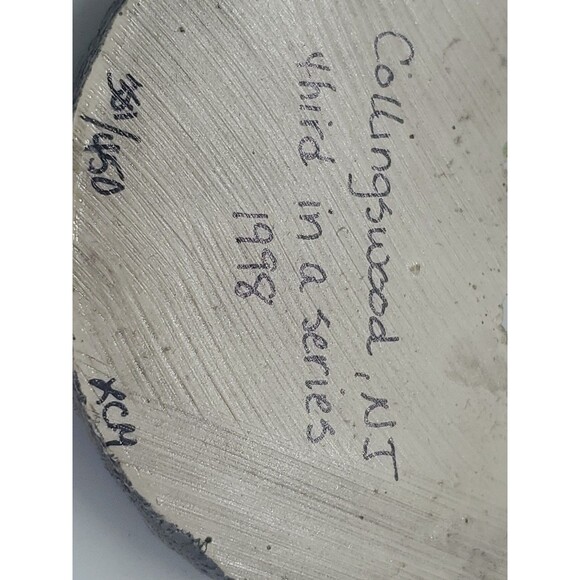 Collingswood, NJ
third in a series
1998
381/450
XCM